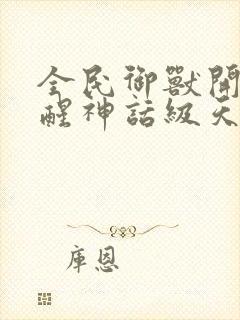 全民御獸開
醒神話級天
庫恩